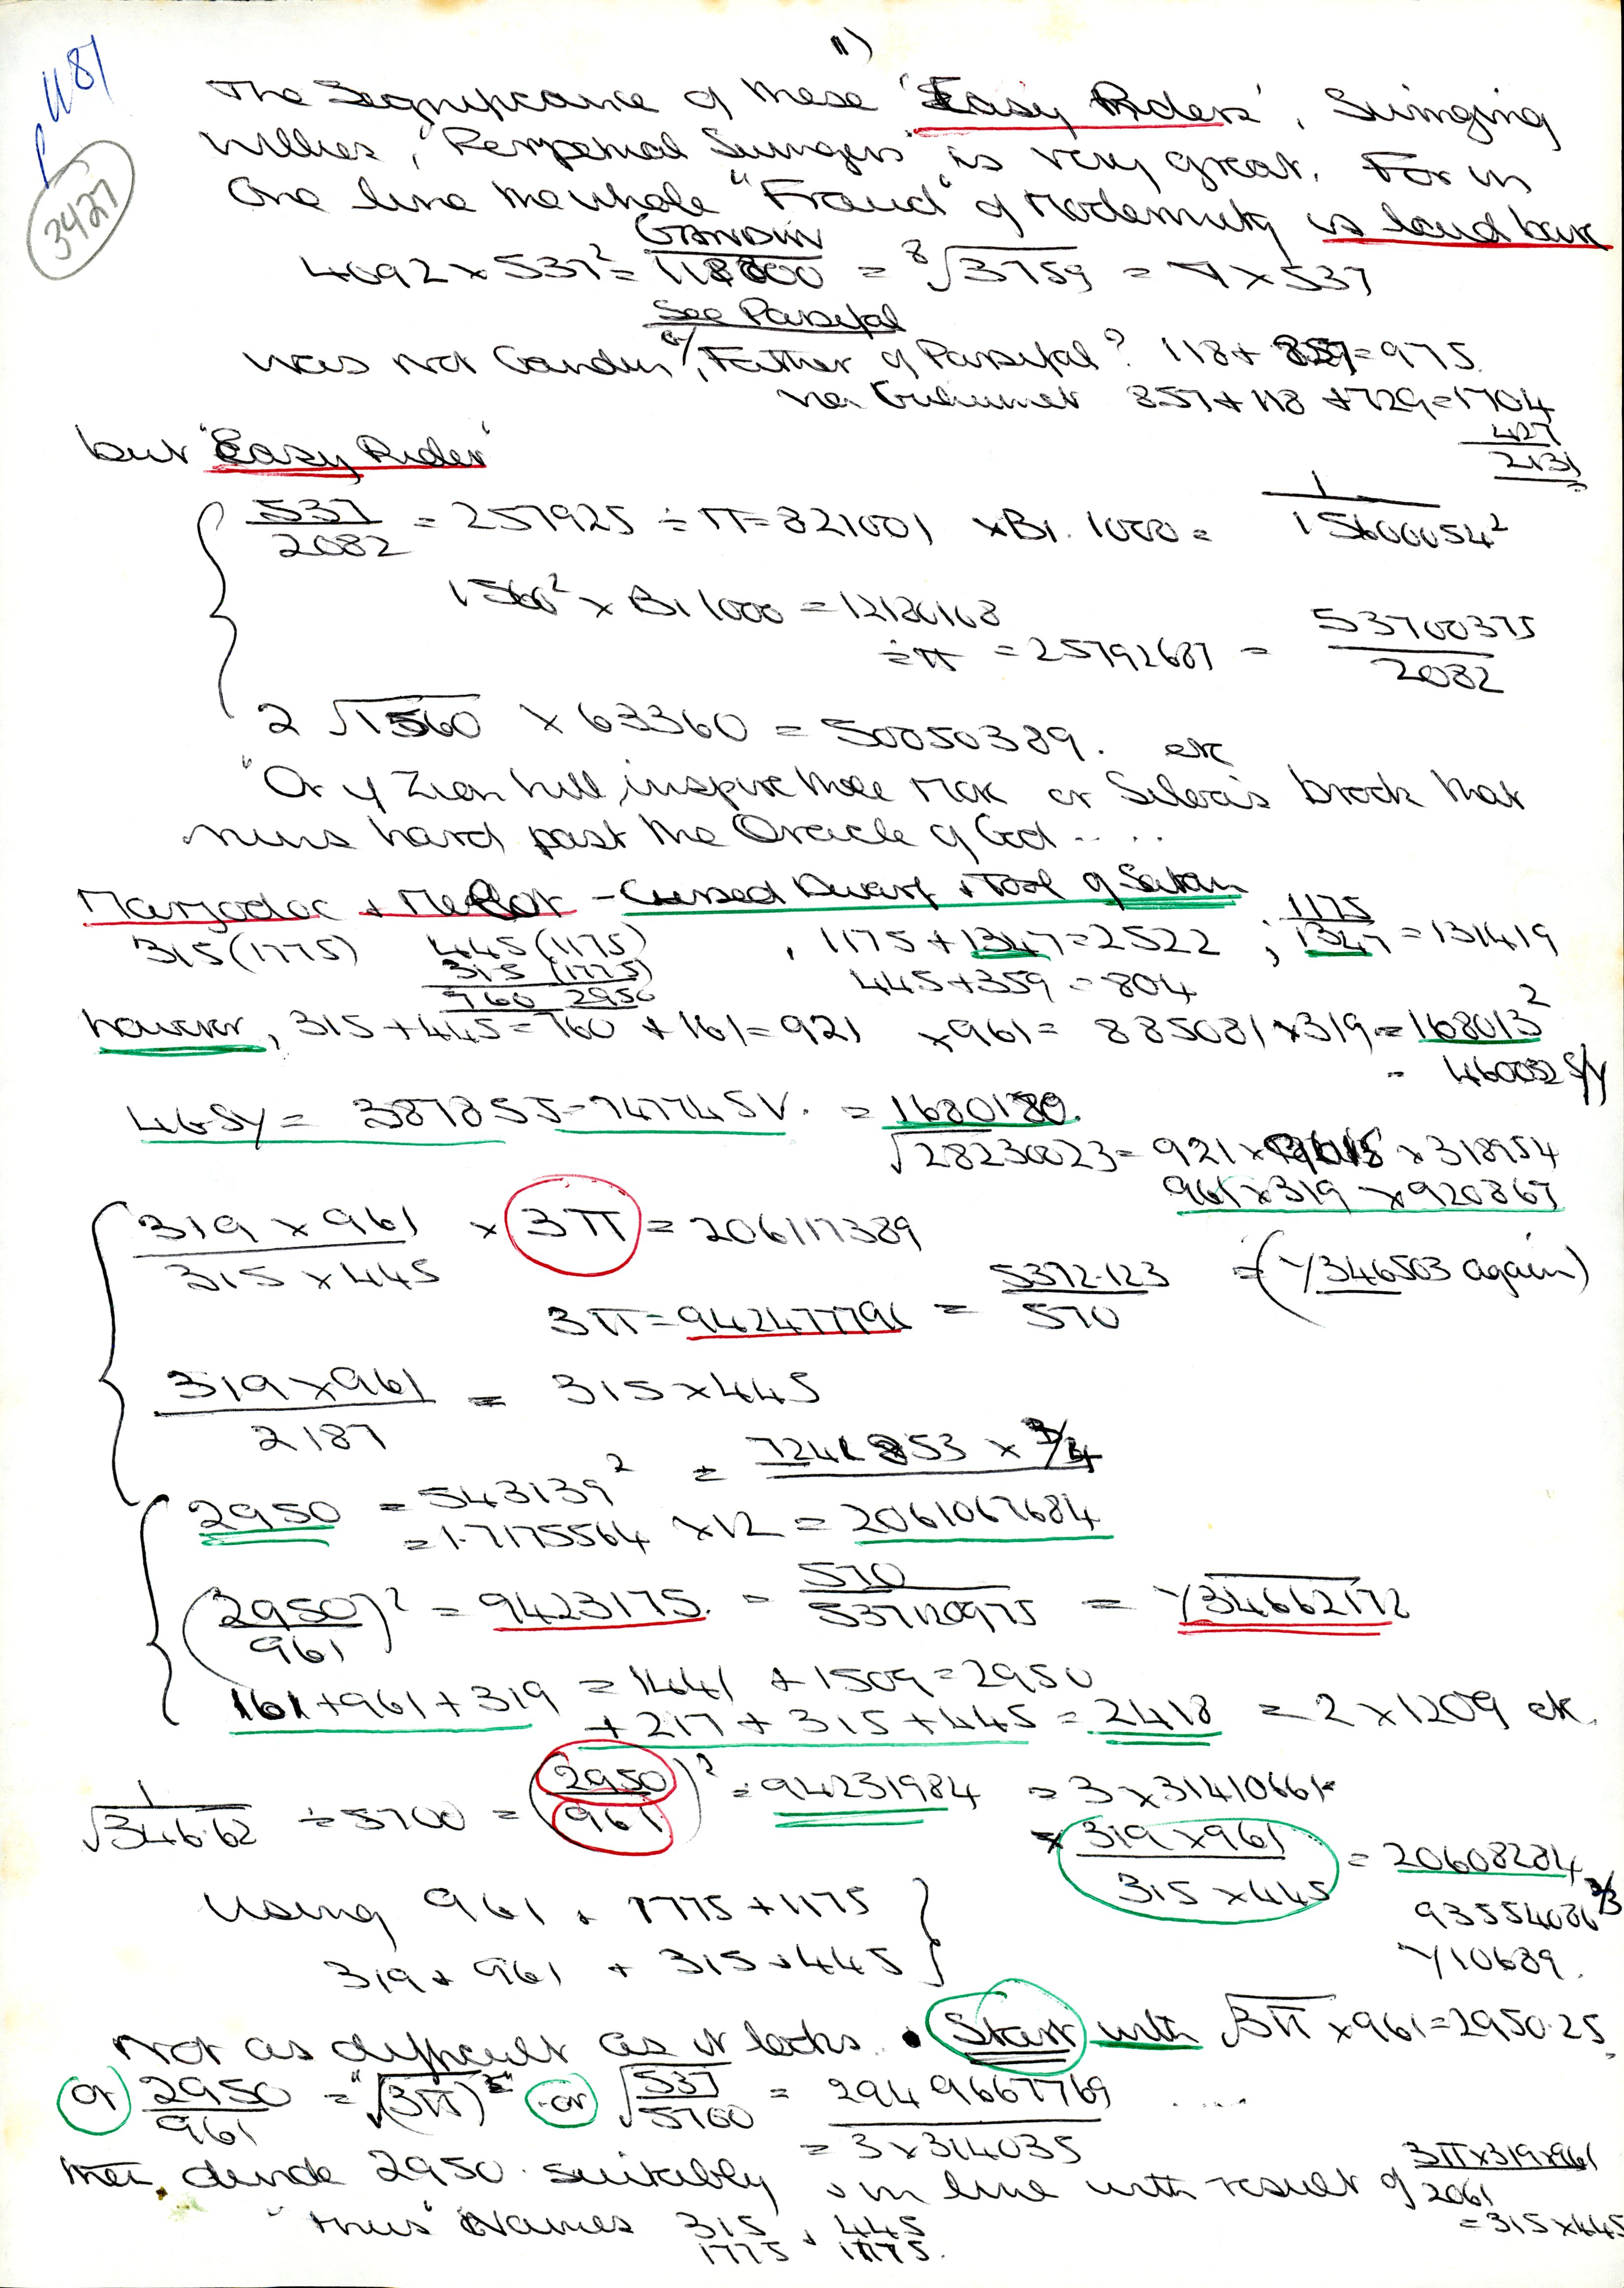 11)
p 1187
3427
The Significance of these 'Easy Riders', Swinging
Willies, "Perpetual Swingers" is very great. For in
One line the whole "Fraud" of Modernity is laid bare
GANDIN
4092 × 537² = 118800 = ⁸√3759 = 7 × 537
See Parsifal
was not Gandin, Father of Parsifal? 118 + 857 = 975.
857 + 118 + 729 = 1704
427
2131
but "Easy Rider"
537/2082 = 257925 ÷ π = 821001 × B1. 1000 = 1/15600054²
1560² × B1 1000 = 12180168
÷ π = 25792687 = 53700375/2082
2 √1560 × 63360 = 50050389. etc
"Or if Zion hill, inspire thee more or Siloa's brook that
runs hard past the Oracle of God ....
Marjodoc + Melot - Cursed Dwarf + Tool of Satan
315 (1775) 445 (1175) , 1175 + 1347 = 2522 ; 1175/1347 = 131419
315 (1775)
760 2950 445 + 359 = 804
however, 315 + 445 = 760 + 161 = 921 × 961 = 885081 × 319 = 168013²
= 460052 S/Y
46SY = 387855 = 747745V. = 1680180.
√28230023 = 921 × × 318954
961 × 319 × 920867
319 × 961/315 × 445 × 3π = 206117389
3π = 942477796 = 5372.123/570 = (√346503 again)
319 × 961/2187 = 315 × 445
2950 = 543139² = 7241853 × 3/4
= 1.7175564 × 12 = 2061067684
(2950/961)² = 9423175. = 570/537120975 = √34662172
161 + 961 + 319 = 1441 + 1509 = 2950
+ 217 + 315 + 445 = 2418 = 2 × 1209 etc.
1/√346.62 ÷ 5700 = (2950/961)² = 94231984 = 3 × 31410661
× 319 × 961/315 × 445 = 20608284
93554086 2/3
√10689.
Using 961 + 1775 + 1175
319 + 961 + 315 + 445
Not as difficult as it looks. • Start with √3π × 961 = 2950.25
or 2950/961 = "√(3π)" or √537/5700 = 2949667769 ....
= 3 × 314035
then divide 2950 suitably in line with result of 3π×319×961/2061 = 315×445
"thus" Names 315 + 445
1775 1175.